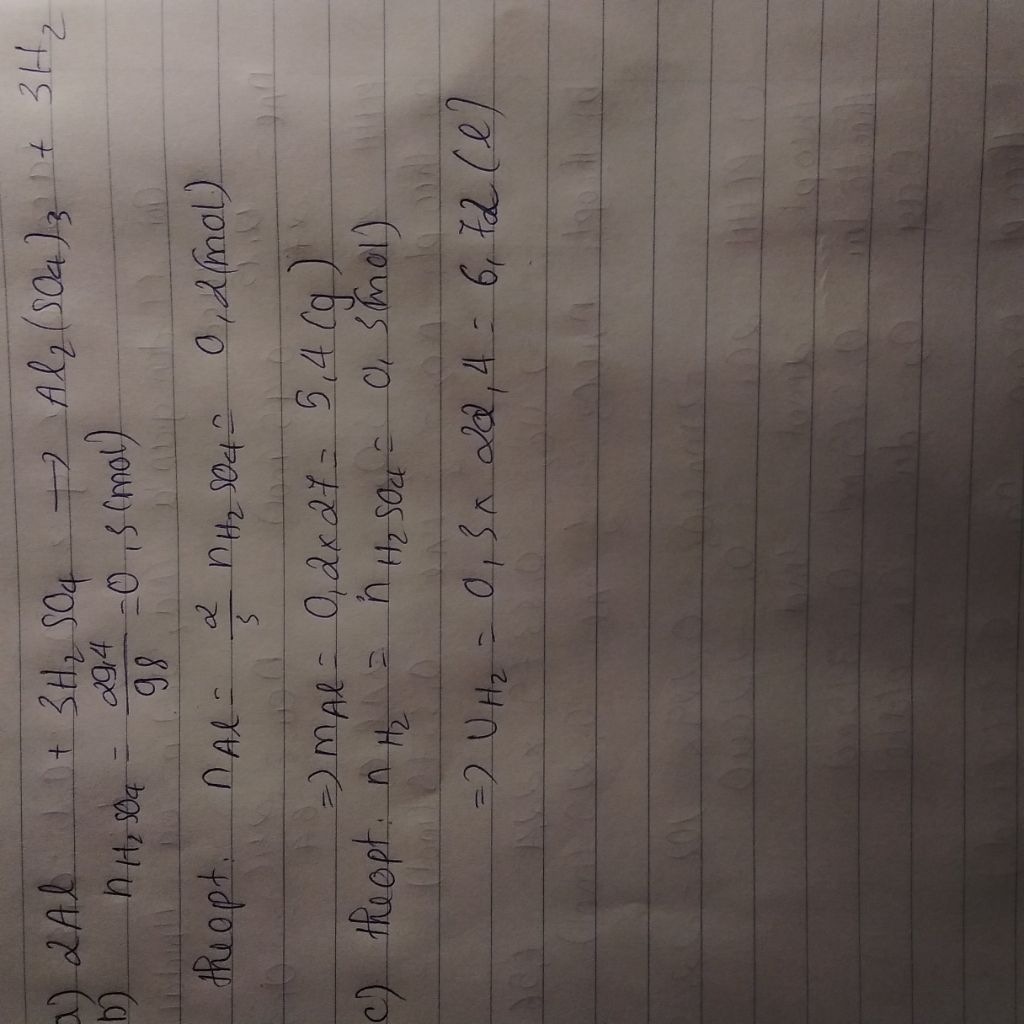 a) 2Al + 3H₂SO₄ → Al₂(SO₄)₃ + 3H₂
b) nH₂SO₄ = 29,4/98 = 0,3 (mol)
theo pt. nAl = 2/3 nH₂SO₄ = 0,2 (mol)
=> mAl = 0,2 x 27 = 5,4 (g)
c) theo pt. nH₂ = nH₂SO₄ = 0,3 (mol)
=> VH₂ = 0,3 x 22,4 = 6,72 (l)